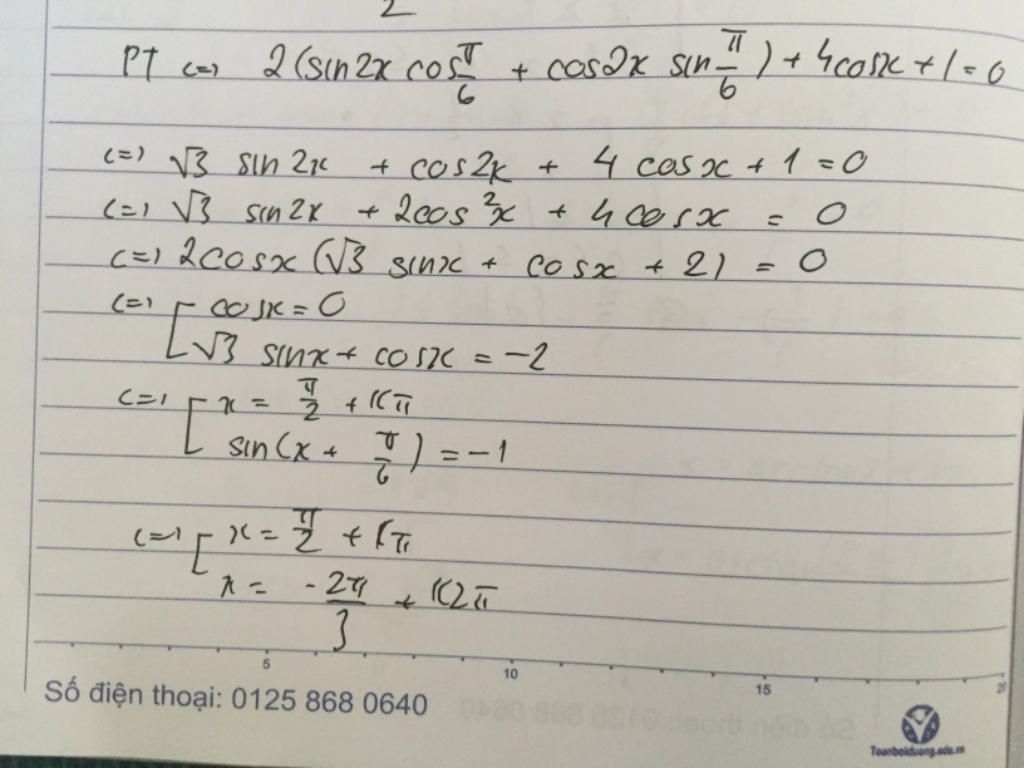 2
PT <=> 2(sin2x cos π/6 + cos2x sin π/6) + 4cosx + 1 = 0
<=> √3 sin2x + cos2x + 4 cosx + 1 = 0
<=> √3 sin2x + 2cos²x + 4cosx = 0
<=> 2cosx (√3 sinx + cosx + 2) = 0
<=> [ cosx = 0
√3 sinx + cosx = -2
<=> [ x = π/2 + kπ
sin(x + π/6) = -1
<=> [ x = π/2 + kπ
x = -2π/3 + k2π
5 10 15 20
Số điện thoại: 0125 868 0640
Toanboiduong.edu.vn